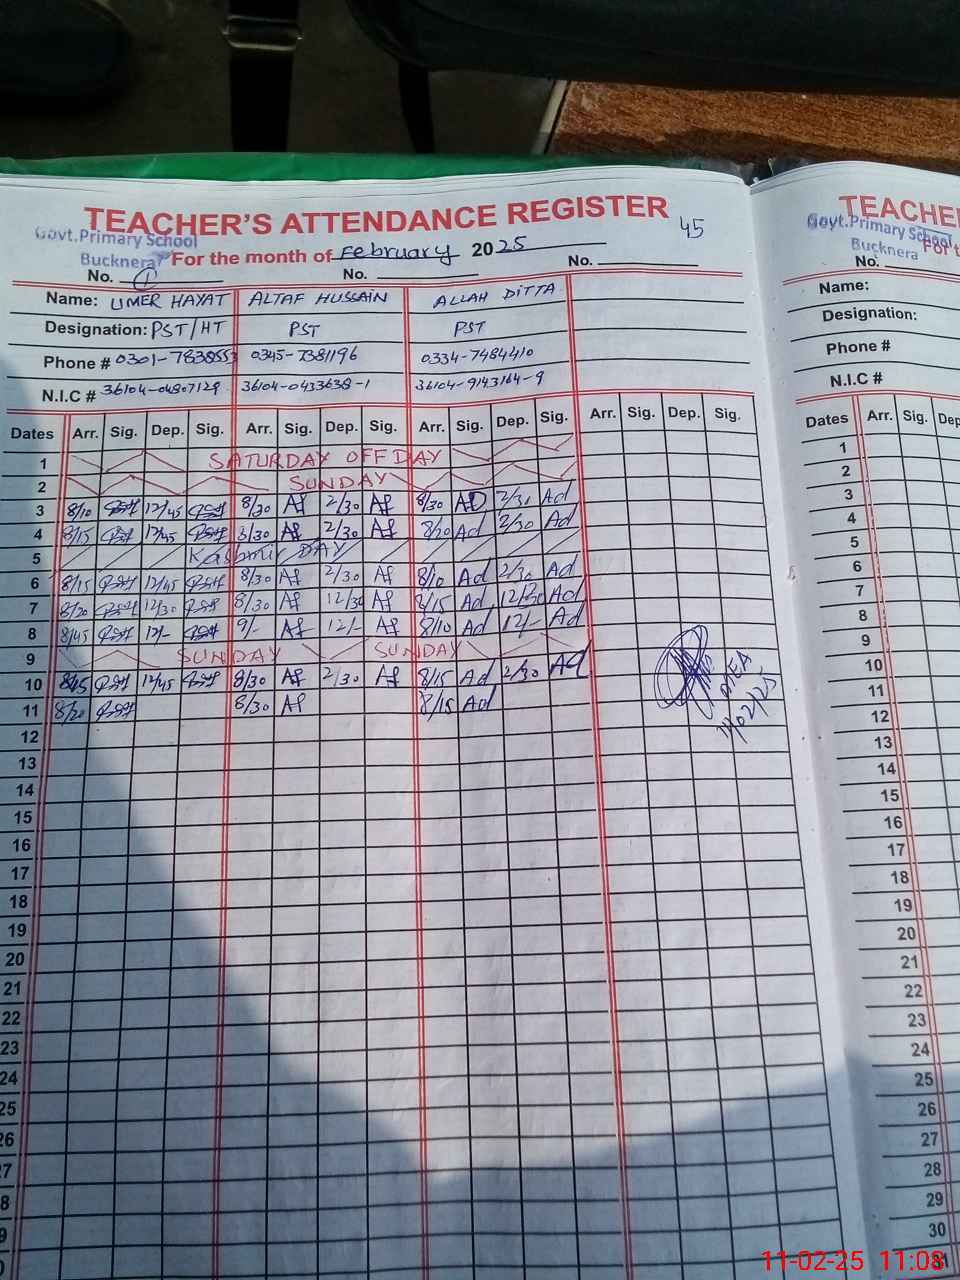 TEACHER'S ATTENDANCE REGISTER
45
Govt.Primary School
Bucknera
For the month of February 2025
No. 1 No. No.
Name: UMER HAYAT ALTAF HUSSAIN ALLAH DITTA
Designation: PST/HT PST PST
Phone # 0345-7381196 0334-7484410
N.I.C # 36104-0433638-1 36104-9143164-9
Dates Arr. Sig. Dep. Sig. Arr. Sig. Dep. Sig. Arr. Sig. Dep. Sig. Arr. Sig. Dep. Sig.
1 SATURDAY OFF DAY
2 SUNDAY
3 8/10 12/45 8/30 Af 2/30 Af 8/30 AD 2/30 Ad
4 8/15 12/45 8/30 Af 2/30 Af 8/20 Ad 2/30 Ad
5 Kashmir DAY
6 8/15 12/45 8/30 Af 2/30 Af 8/10 Ad 2/30 Ad
7 8/20 12/30 8/30 Af 12/30 Af 8/15 Ad 12/30 Ad
8 8/45 12/- 9/- Af 12/- Af 8/10 Ad 12/- Ad
9 SUNDAY SUNDAY
10 8/15 12/45 8/30 Af 2/30 Af 8/15 Ad 2/30 Ad
11 8/20 8/30 Af 8/15 Ad
12
13
14
15
16
17
18
19
20
21
22
23
24
25
26
27
28
29
30
AEA
11/02/25
TEACHE
Govt.Primary School
Bucknera
For t
No.
Name:
Designation:
Phone #
N.I.C #
Dates Arr. Sig. Dep
1
2
3
4
5
6
7
8
9
10
11
12
13
14
15
16
17
18
19
20
21
22
23
24
25
26
27
28
29
30
31
11-02-25 11:08